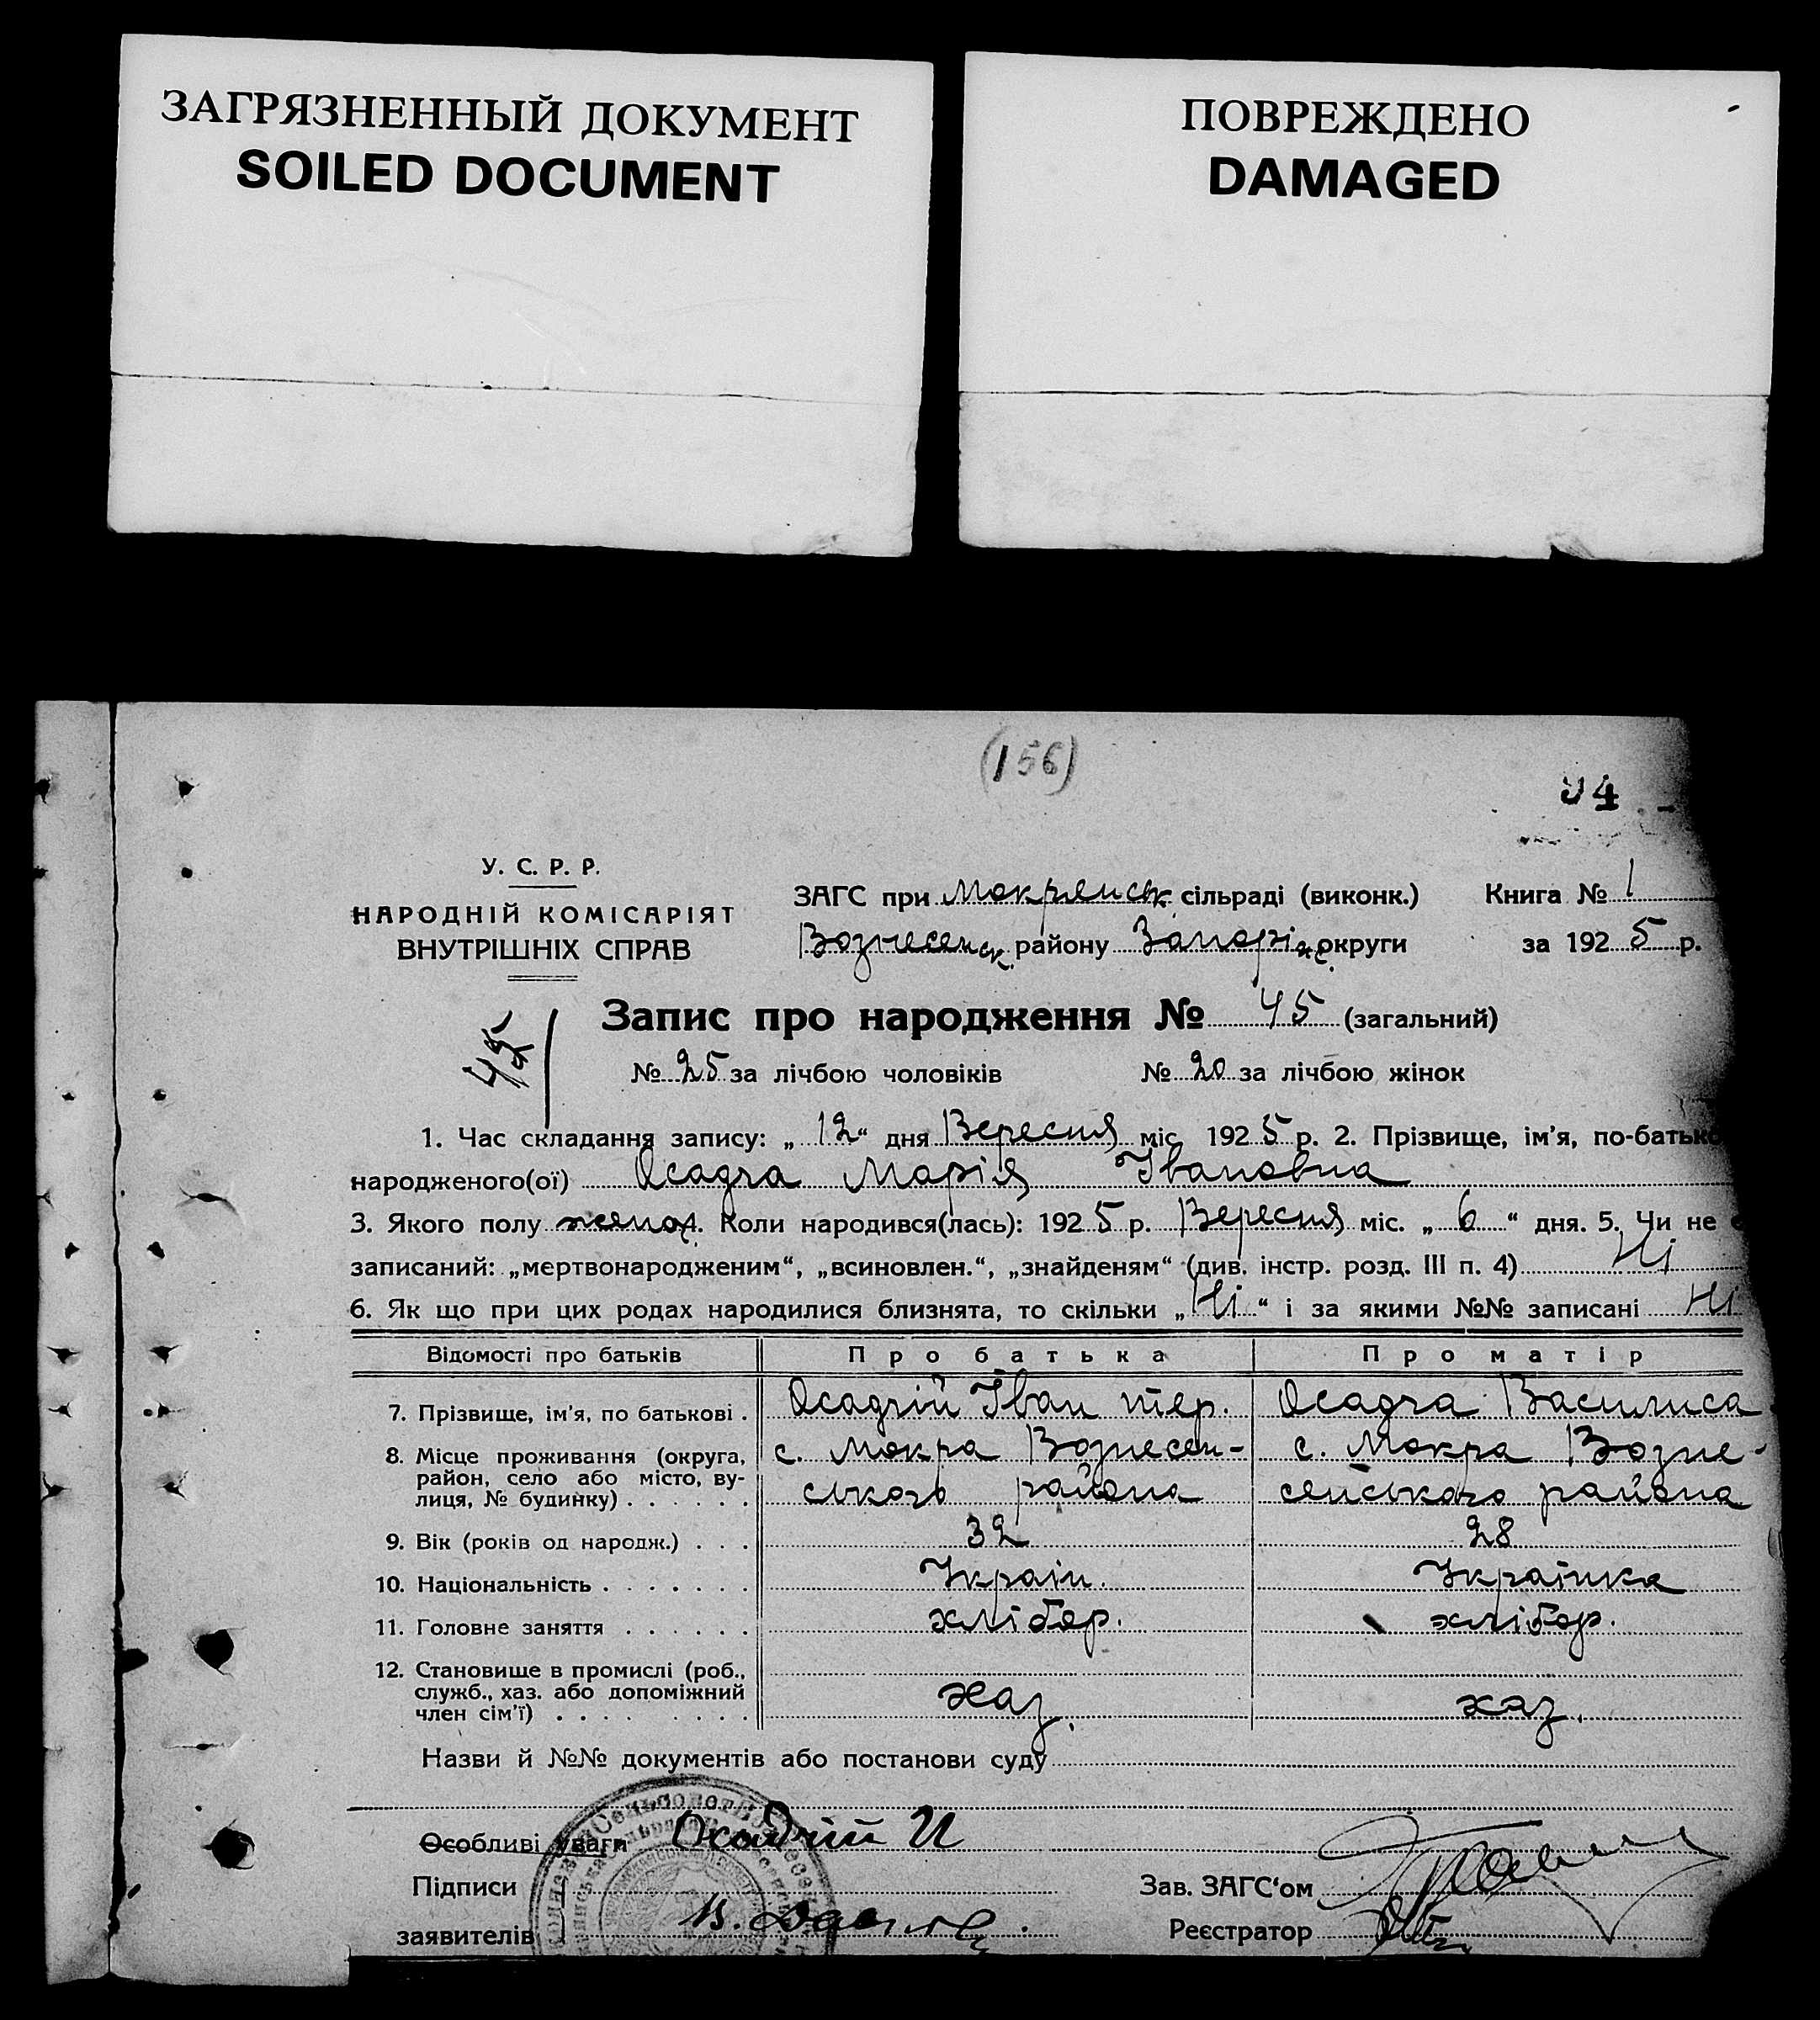 ЗАГРЯЗНЕННЫЙ ДОКУМЕНТ
SOILED DOCUMENT
ПОВРЕЖДЕНО
DAMAGED
(156)
У. С. Р. Р.
НАРОДНІЙ КОМІСАРІЯТ
ВНУТРІШНІХ СПРАВ
ЗАГС при Мокрянськ. сільраді (виконк.) Книга № 1
Вознесенськ. району Запоріж. округи за 1925 р.
Запис про народження № 45 (загальний)
45
№ 25 за лічбою чоловіків № 20 за лічбою жінок
1. Час складання запису: „12“ дня Вересня міс. 1925 р. 2. Прізвище, ім'я, по-батько
народженого(ої) Осадча Марія Івановна
3. Якого полу жіноч. Коли народився(лась): 1925 р. Вересня міс. „6“ дня. 5. Чи не є
записаний: „мертвонародженим“, „всиновлен.“, „знайденям“ (див. інстр. розд. III п. 4) Ні
6. Як що при цих родах народилися близнята, то скільки „Ні“ і за якими №№ записані Ні
Відомості про батьків Про батька Про матір
7. Прізвище, ім'я, по батькові . Осадчій Іван Осадча Василиса
8. Місце проживання (округа, с. Мокра Вознесен- с. Мокра Возне-
район, село або місто, ву-
лиця, № будинку) . . . . . . ського района сенського района
9. Вік (років од народж.) . . . 32 28
10. Національність . . . . . . . Україн. Українка
11. Головне заняття . . . . . . хлібор. хлібор.
12. Становище в промислі (роб.,
служб., хаз. або допоміжний хаз. хаз.
член сім'ї) . . . . . . . . .
Назви й №№ документів або постанови суду
Особливі уваги Осадчій И
Підписи Зав. ЗАГС'ом
заявителів Реєстратор